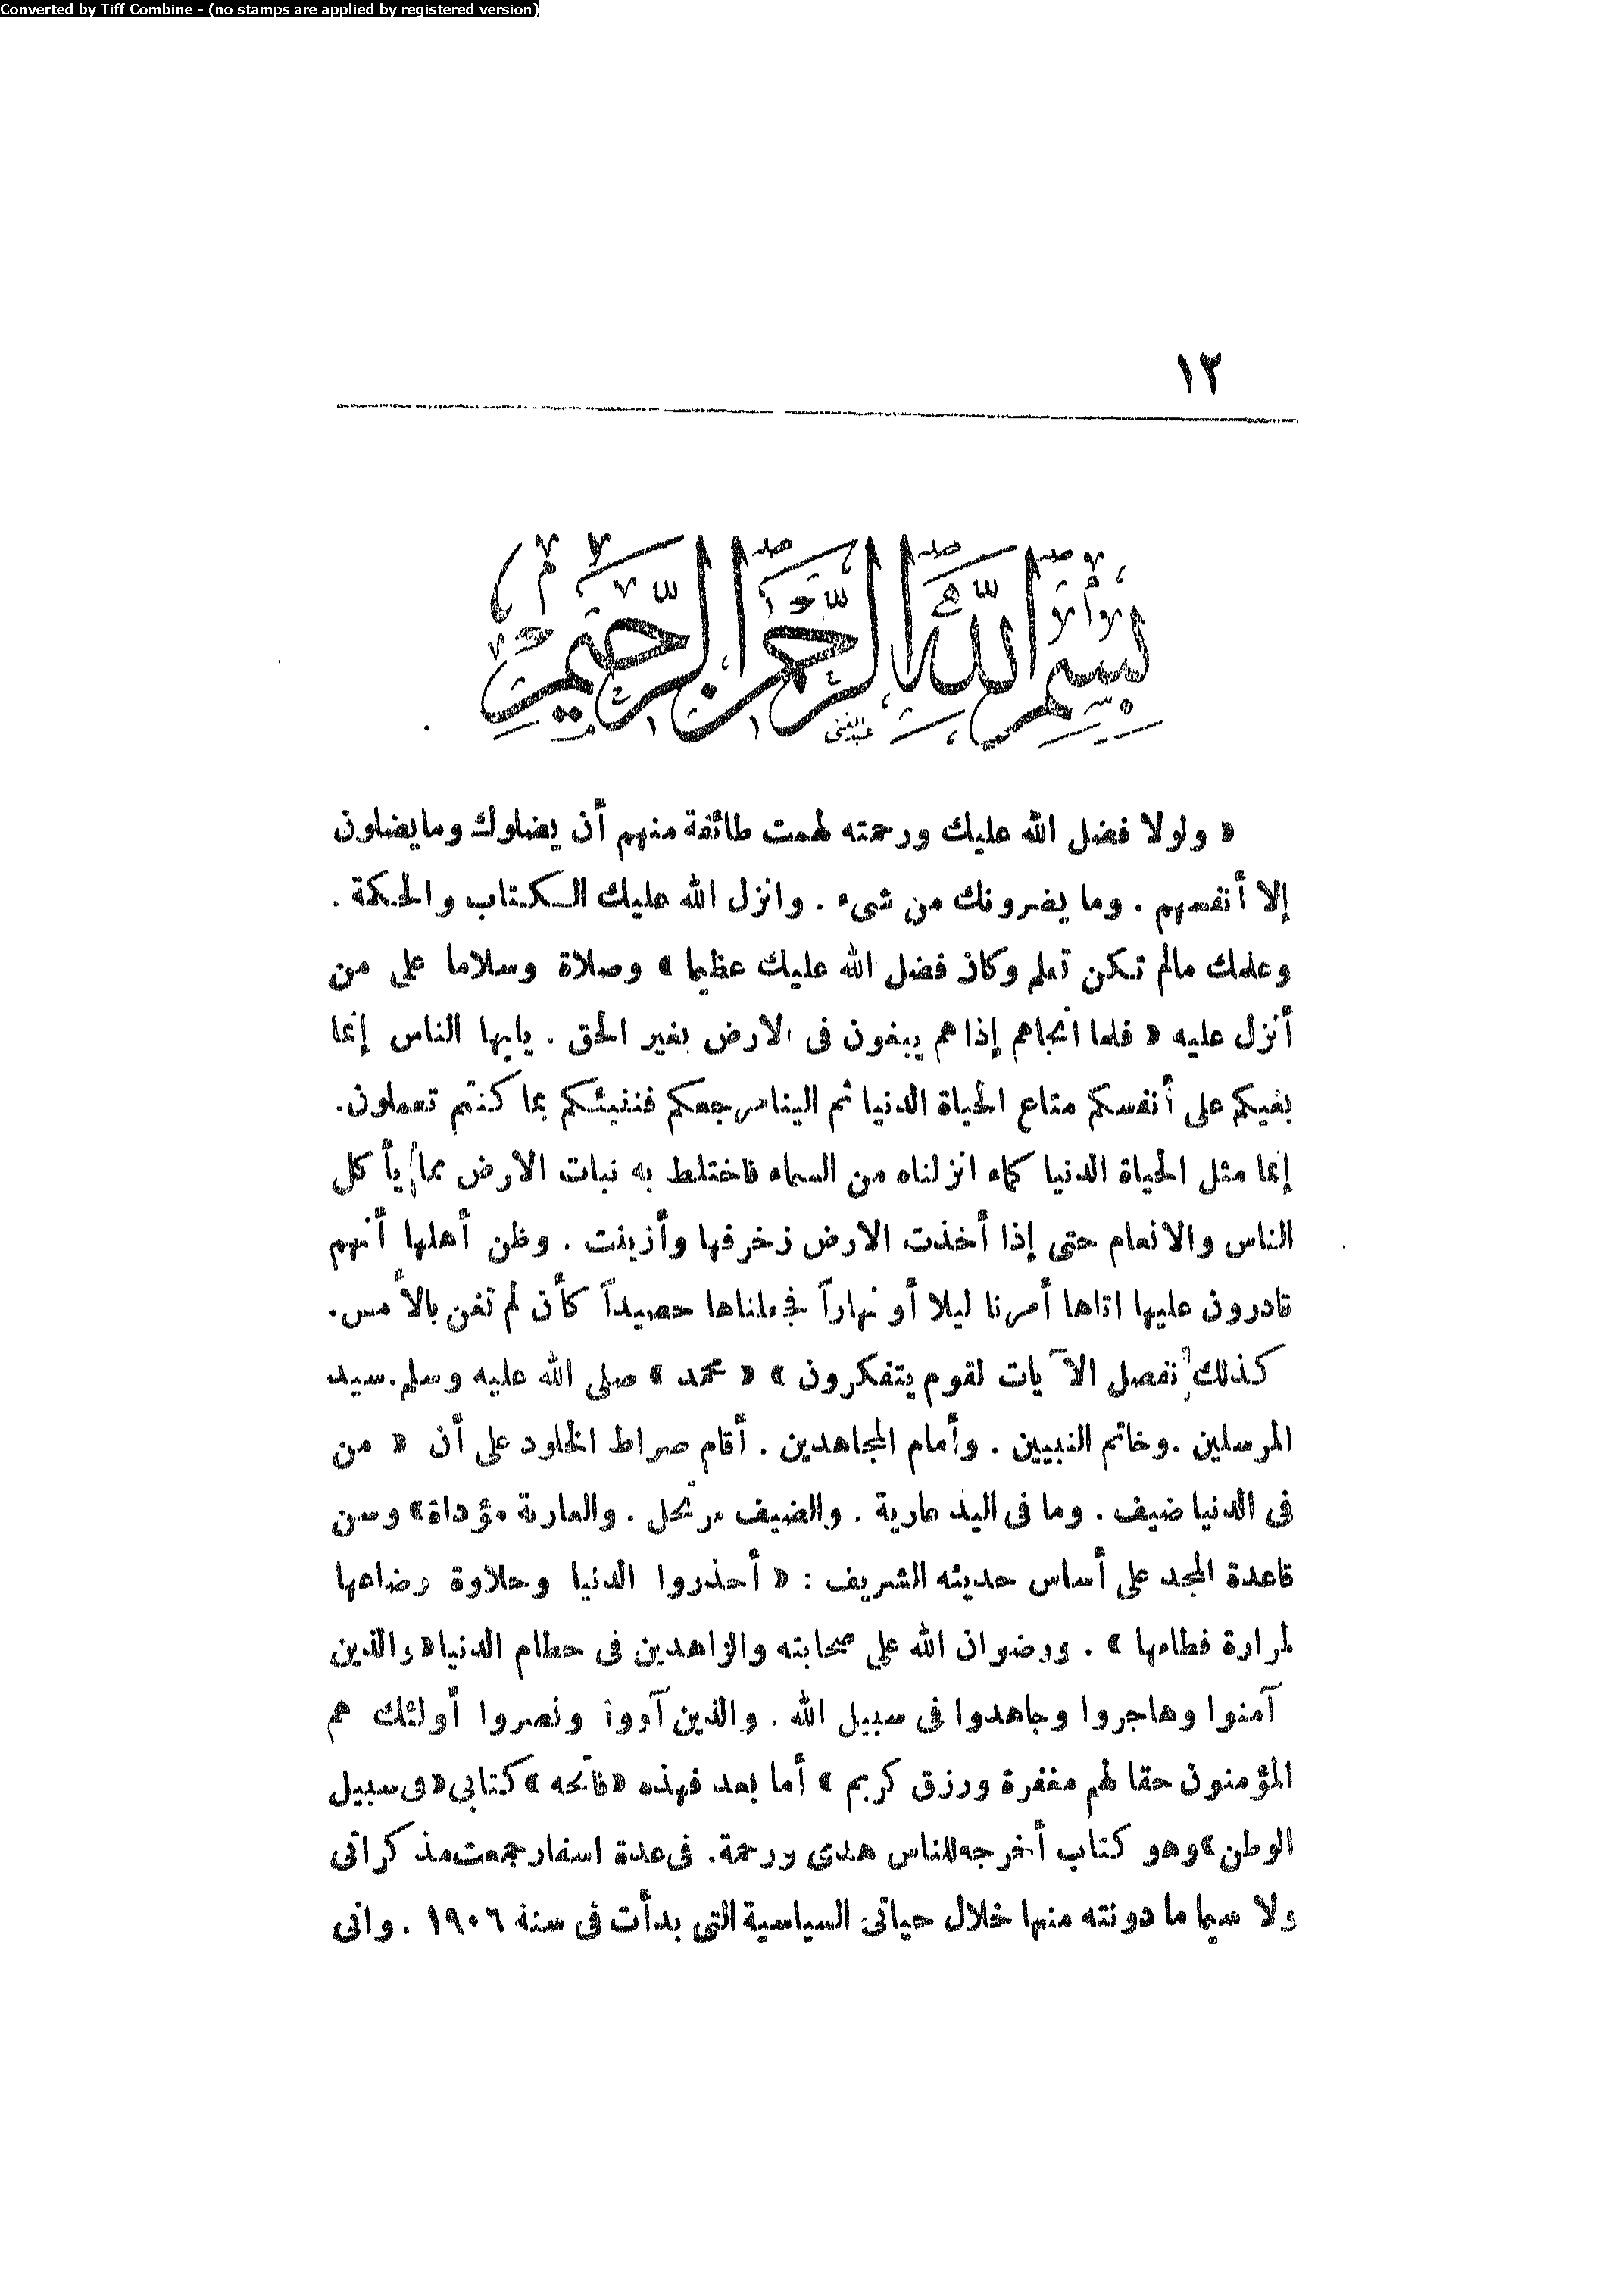 Converted by Tiff Combine - (no stamps are applied by registered version)
١٢
بسم الله الرحمن الرحيم
« ولولا فضل الله عليك ورحمته لهمت طائفة منهم أن يضلوك وما يضلون
إلا أنفسهم . وما يضرونك من شىء . وانزل الله عليك الكتاب والحكمة .
وعلمك مالم تكن تعلم وكان فضل الله عليك عظيما » وصلاة وسلاما على من
أنزل عليه « فلما انجاهم إذا هم يبغون فى الارض بغير الحق . يايها الناس إنما
بغيكم على أنفسكم متاع الحياة الدنيا ثم الينا مرجعكم فننبئكم بما كنتم تعملون .
إنما مثل الحياة الدنيا كماء انزلناه من السماء فاختلط به نبات الارض مما يأكل
الناس والانعام حتى إذا أخذت الارض زخرفها وأزينت . وظن أهلها أنهم
قادرون عليها اتاها أمرنا ليلا أو نهاراً فجعلناها حصيداً كأن لم تغن بالأمس .
كذلك نفصل الآيات لقوم يتفكرون » « محمد » صلى الله عليه وسلم . سيد
المرسلين . وخاتم النبيين . وأمام المجاهدين . أقام صراط الخلود على أن « من
فى الدنيا ضيف . وما فى اليد عارية . والضيف مرتحل . والعارية مؤداة » وسن
قاعدة المجد على أساس حديثه الشريف : « أحذروا الدنيا وحلاوة رضاعها
لمرارة فطامها » . ورضوان الله على صحابته والزاهدين فى حطام الدنيا « والذين
آمنوا وهاجروا وجاهدوا فى سبيل الله . والذين آووا ونصروا أولئك هم
المؤمنون حقا لهم مغفرة ورزق كريم » أما بعد فهذه « فاتحه » كتابى « فى سبيل
الوطن » وهو كتاب أخرجه للناس هدى ورحمة . فى عدة اسفار جمعت مذكراتى
ولا سيما ما دونته منها خلال حياتى السياسية التى بدأت فى سنة ١٩٠٦ . وانى